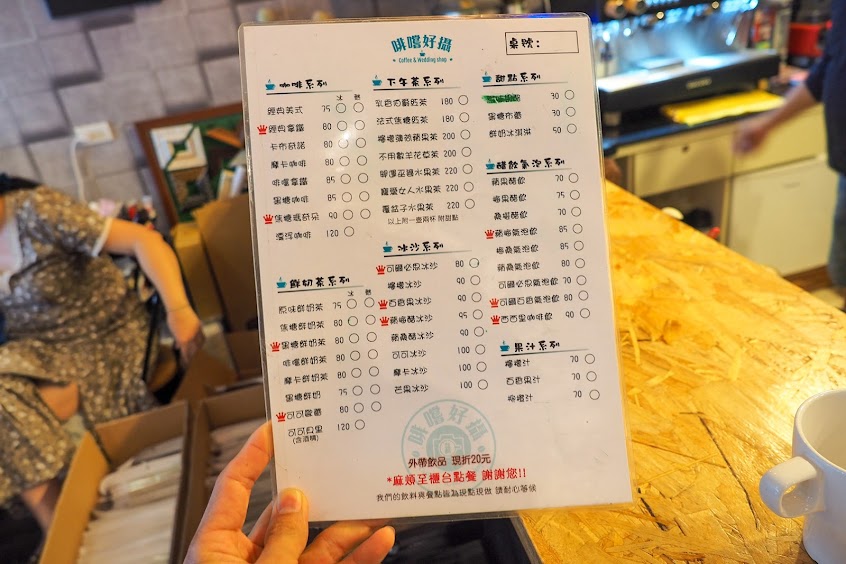 啡嚐好攝
Coffee & Wedding shop
桌號：
咖啡系列
冰 熱
經典美式 75
經典拿鐵 80
卡布奇諾 80
摩卡咖啡 80
啡嚐拿鐵 85
黑糖咖啡 85
焦糖瑪奇朵 90
漂浮咖啡 120
鮮奶茶系列
冰 熱
原味鮮奶茶 75
焦糖鮮奶茶 80
黑糖鮮奶茶 80
啡嚐鮮奶茶 80
摩卡鮮奶茶 80
黑糖鮮奶 75
可可歐蕾 80
可可貝里 120
(含酒精)
下午茶系列
乳香伯爵紅茶 180
法式焦糖紅茶 180
檸檬薄荷蘋果茶 200
不用數羊花草茶 200
水果茶 220
寵愛女人水果茶 220
覆盆子水果茶 220
以上附一壺兩杯 附甜點
冰沙系列
可爾必思冰沙 80
檸檬冰沙 90
百香果冰沙 90
蘋梅醋冰沙 95
蘋桑醋冰沙 90
可可冰沙 100
摩卡冰沙 100
芒果冰沙 100
甜點系列
30
黑糖布蕾 30
鮮奶冰淇淋 50
醋飲氣泡系列
蘋果醋飲 70
梅果醋飲 75
桑椹醋飲 70
蘋梅氣泡飲 85
梅桑氣泡飲 85
蘋桑氣泡飲 80
可爾氣泡飲 70
可爾百香氣泡飲 80
西西里咖啡飲 90
果汁系列
檸檬汁 70
百香果汁 70
柳橙汁 70
啡嚐好攝
外帶飲品 現折20元
*麻煩至櫃台點餐 謝謝您!!
我們的飲料與餐點皆為現點現做 請耐心等候